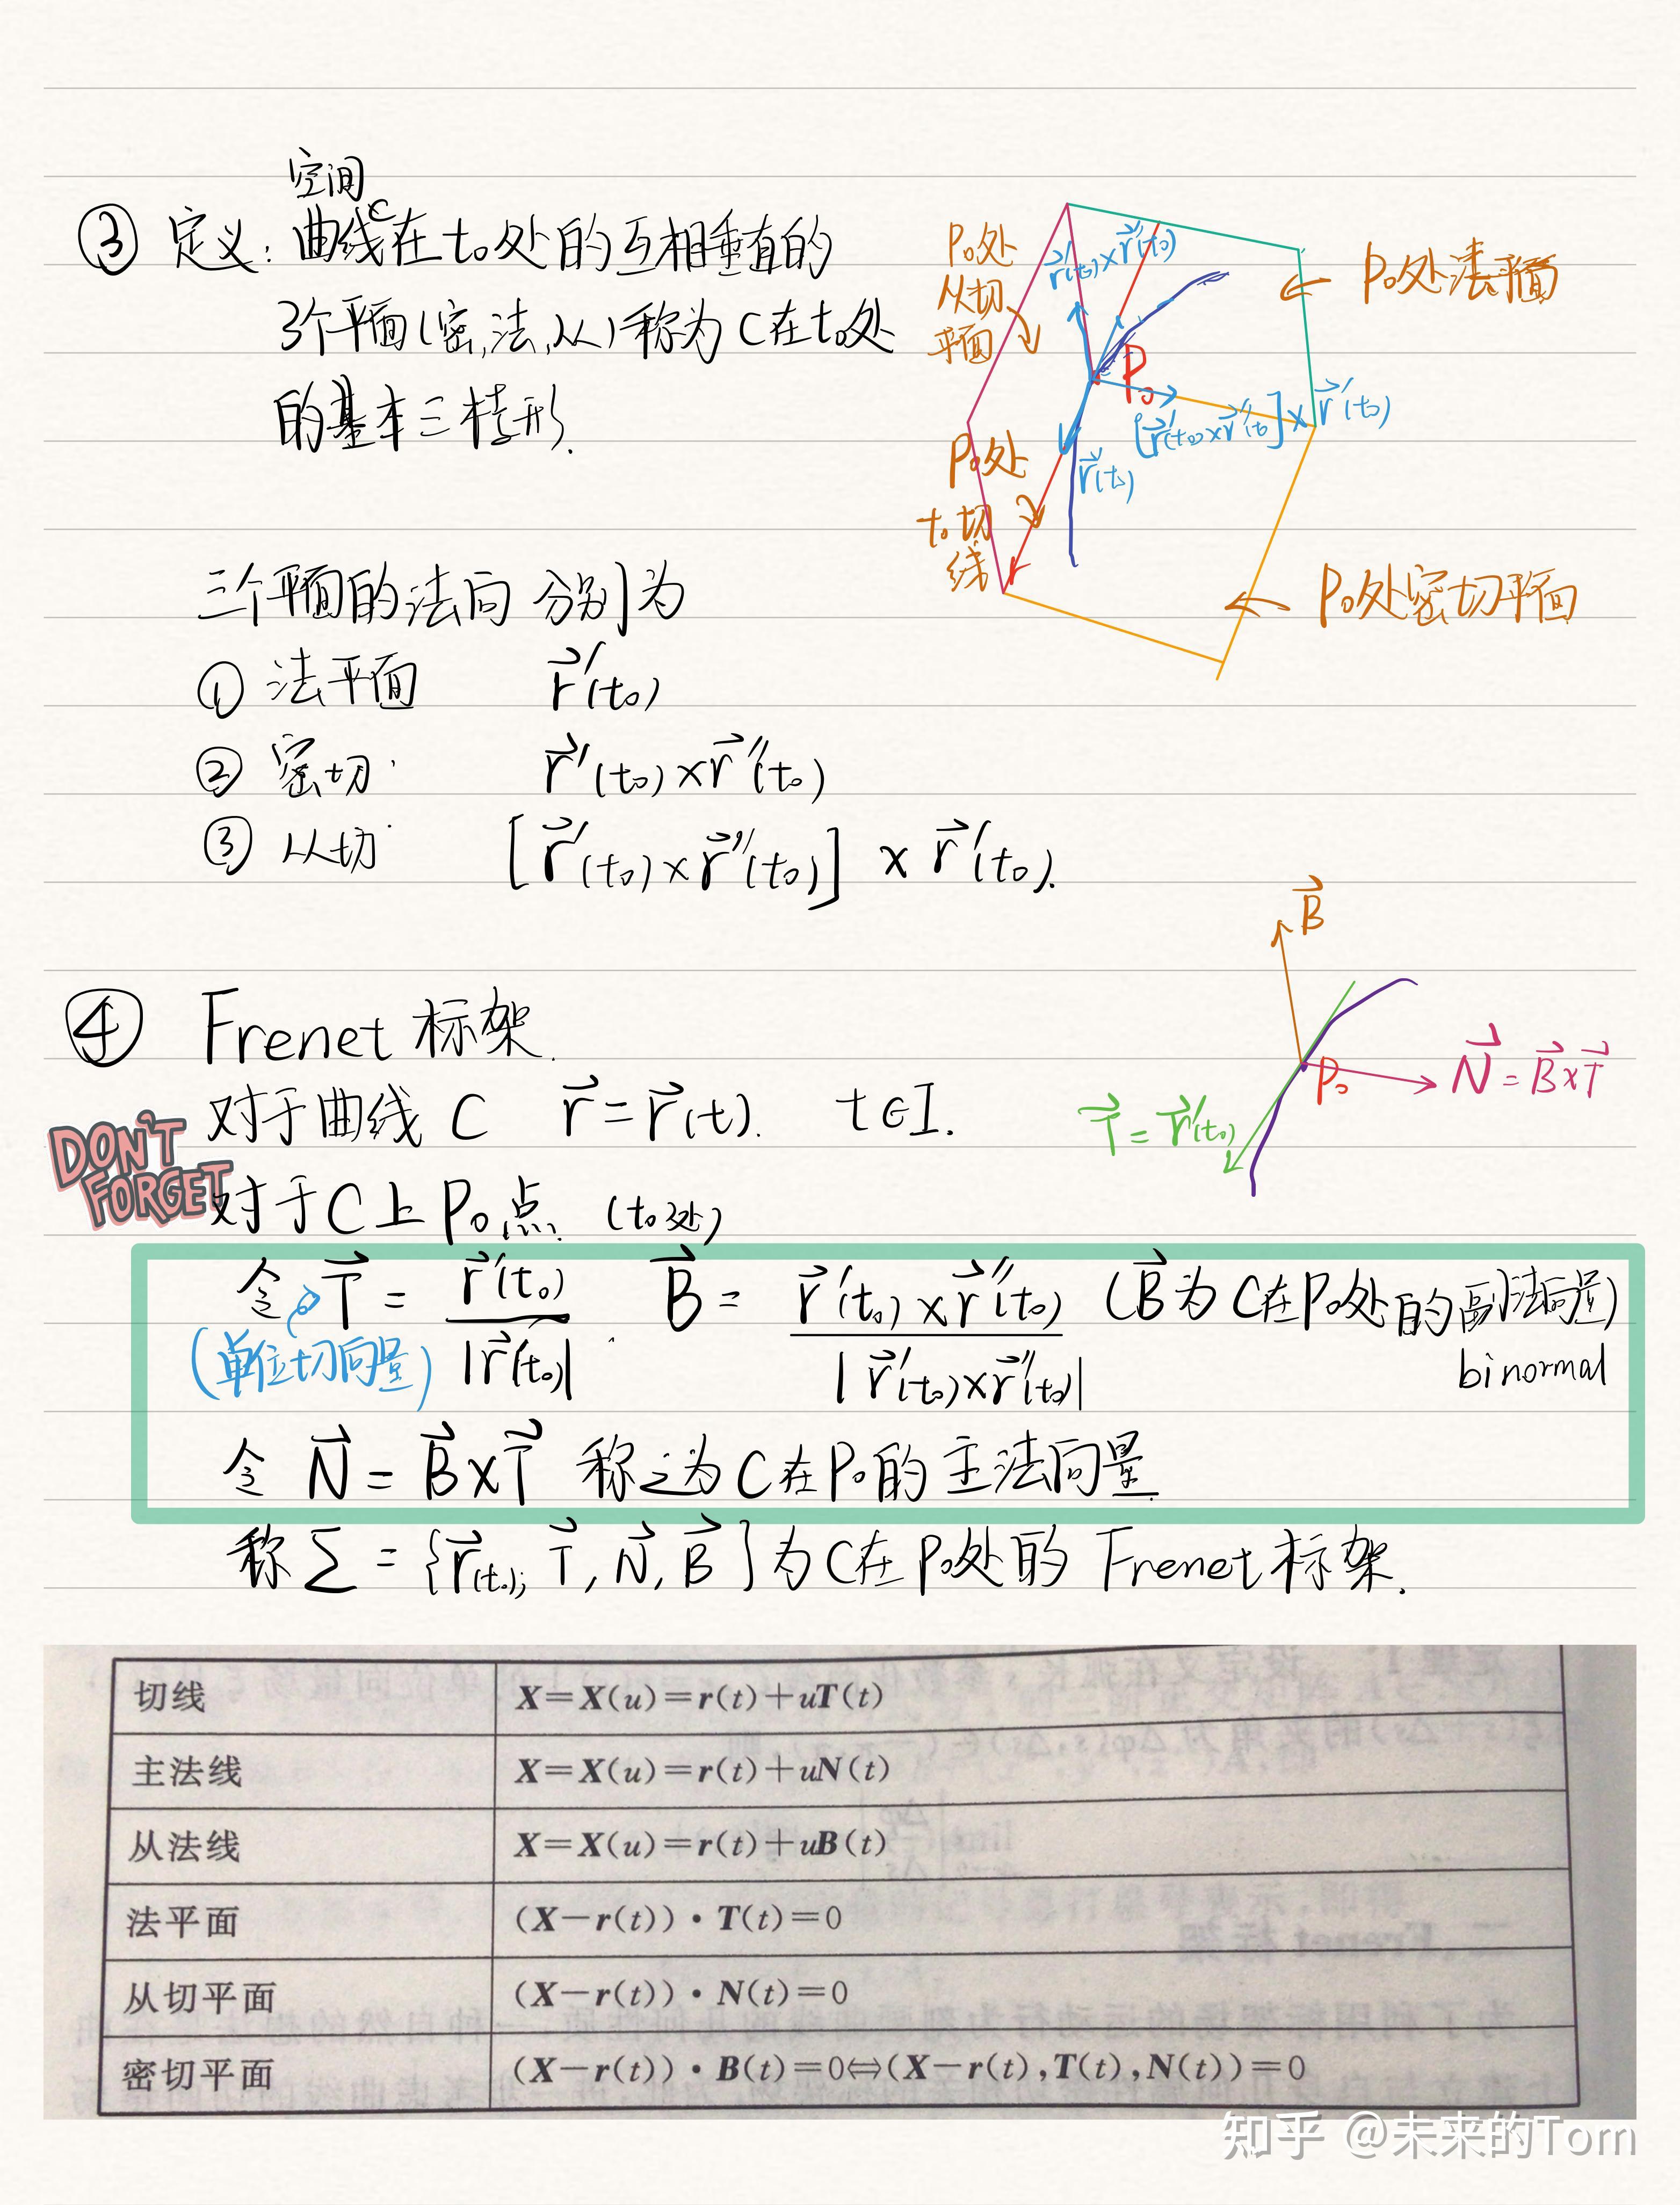 空间
③ 定义: 曲线C在t₀处的互相垂直的
3个平面(密,法,从)称为C在t₀处
的基本三棱形.
P₀处
从切
平面
r⃗′(t₀)×r⃗″(t₀)
P₀处法平面
P₀
[r⃗′(t₀)×r⃗″(t₀)]×r⃗′(t₀)
r⃗′(t₀)
P₀处
t₀切
线
P₀处密切平面
三个平面的法向 分别为
① 法平面 r⃗′(t₀)
② 密切· r⃗′(t₀)×r⃗″(t₀)
③ 从切· [r⃗′(t₀)×r⃗″(t₀)] × r⃗′(t₀).
④ Frenet 标架.
B⃗
P₀
N⃗ = B⃗×T⃗
T⃗ = r⃗′(t₀)
对于曲线 C r⃗=r⃗(t). t∈I.
DON'T
FORGET
对于C上P₀点. (t₀处)
令 T⃗ = r⃗′(t₀)/|r⃗′(t₀)| . B⃗ = r⃗′(t₀)×r⃗″(t₀)/|r⃗′(t₀)×r⃗″(t₀)| (B⃗为C在P₀处的副法向量)
(单位切向量)
binormal
令 N⃗ = B⃗×T⃗ 称之为C在P₀的主法向量.
称∑ = {r⃗(t₀); T⃗, N⃗, B⃗}为C在P₀处的 Frenet标架.
切线 X=X(u)=r(t)+uT(t)
主法线 X=X(u)=r(t)+uN(t)
从法线 X=X(u)=r(t)+uB(t)
法平面 (X−r(t))·T(t)=0
从切平面 (X−r(t))·N(t)=0
密切平面 (X−r(t))·B(t)=0⇔(X−r(t),T(t),N(t))=0
知乎 @未来的Tom